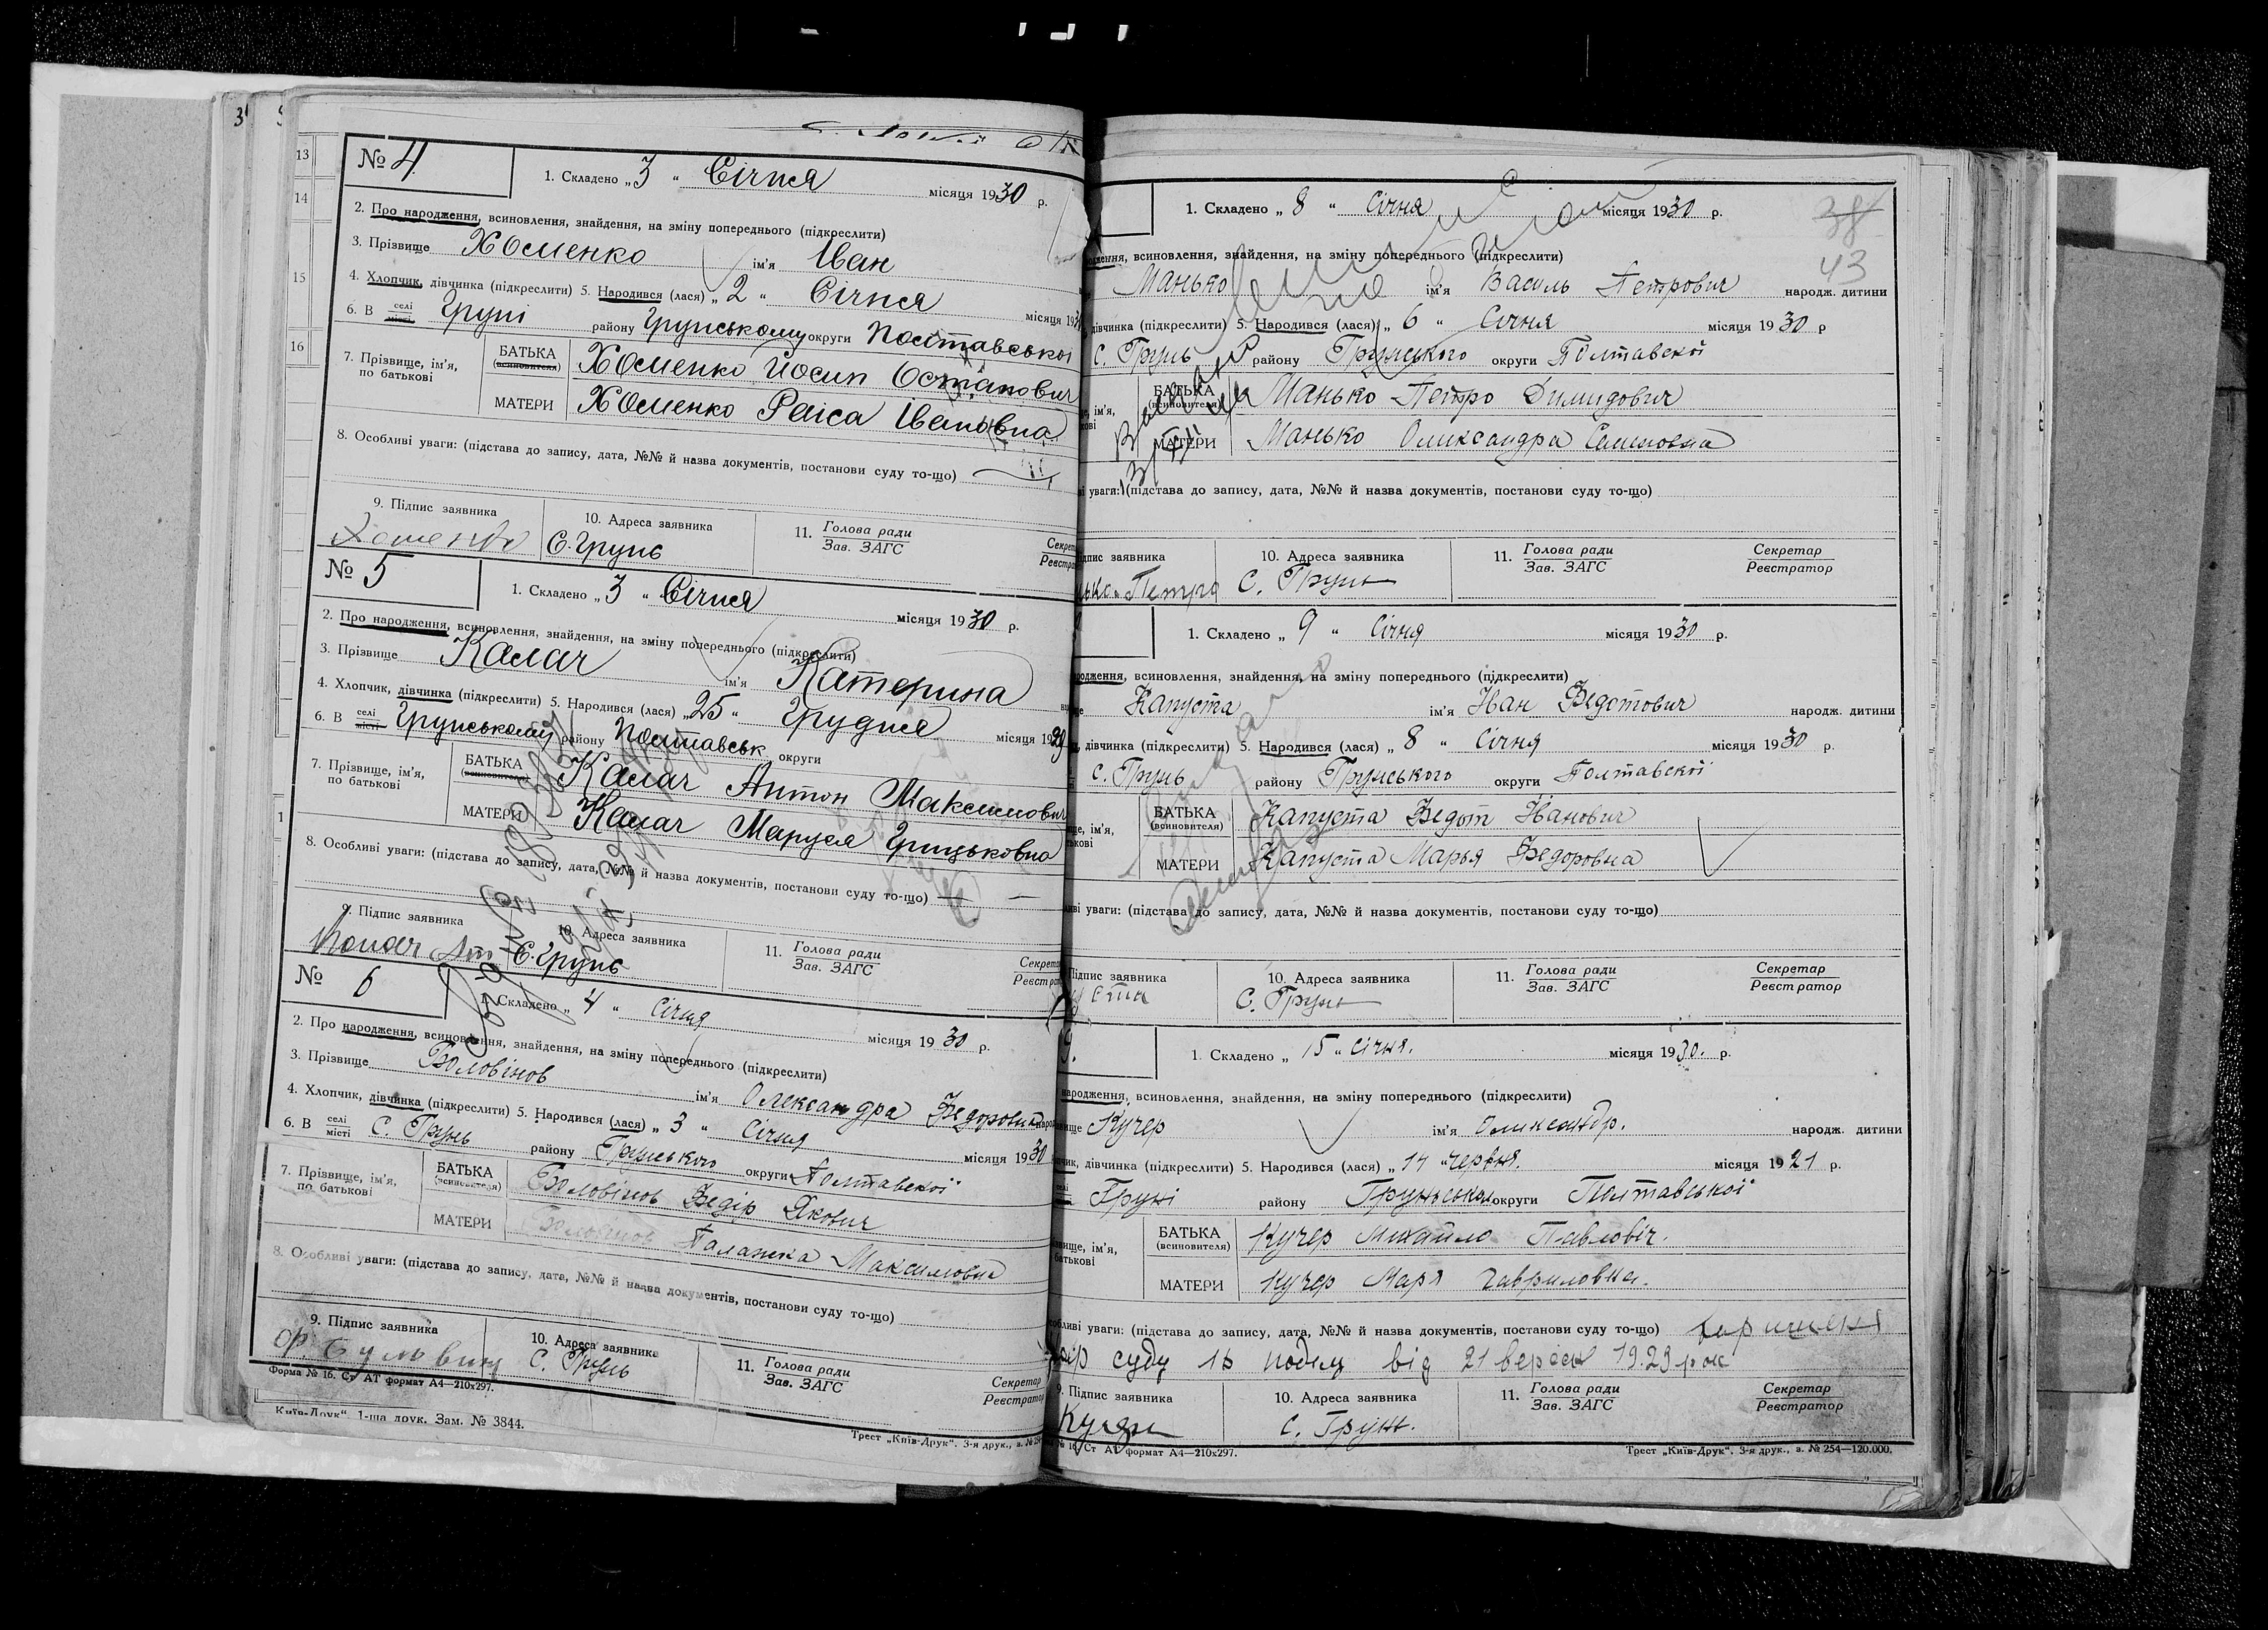 № 4
1. Складено „ 3 “ Січня місяця 1930 р.
2. Про народження, всиновлення, знайдення, на зміну попереднього (підкреслити)
3. Прізвище Хоменко ім'я Іван
4. Хлопчик, дівчинка (підкреслити) 5. Народився (лася) „ 2 “ Січня місяця 19
6. В селі місті Груні району Грунському округи Полтавської
7. Прізвище, ім'я, по батькові
БАТЬКА (всиновителя) Хоменко Йосип Остапович
МАТЕРИ Хоменко Раіса Івановна
8. Особливі уваги: (підстава до запису, дата, №№ й назва документів, постанови суду то-що)
9. Підпис заявника 10. Адреса заявника 11. Голова ради Зав. ЗАГС Секрета Реєстра
Хоменко С. Грунь
№ 5
1. Складено „ 3 “ Січня місяця 1930 р.
2. Про народження, всиновлення, знайдення, на зміну попереднього (підкреслити)
3. Прізвище Калач ім'я Катерина
4. Хлопчик, дівчинка (підкреслити) 5. Народився (лася) „ 25 “ Грудня місяця 1929
6. В селі місті Грунському району Полтавськ округи
7. Прізвище, ім'я, по батькові
БАТЬКА (всиновителя) Калач Антон Максимович
МАТЕРИ Калач Маруся Грицьковна
8. Особливі уваги: (підстава до запису, дата, №№ й назва документів, постанови суду то-що)
9. Підпис заявника 10. Адреса заявника 11. Голова ради Зав. ЗАГС Секрета Реєстра
С. Грунь
№ 6
1. Складено „ 4 “ Січня місяця 1930 р.
2. Про народження, всиновлення, знайдення, на зміну попереднього (підкреслити)
3. Прізвище Боловінов ім'я Олександра Федоровна
4. Хлопчик, дівчинка (підкреслити) 5. Народився (лася) „ 3 “ Січня місяця 1930
6. В селі місті С. Грунь району Грунського округи Полтавской
7. Прізвище, ім'я, по батькові
БАТЬКА (всиновителя) Боловінов Федір Якович
МАТЕРИ Боловінов Палажка Максимовна
8. Особливі уваги: (підстава до запису, дата, №№ й назва документів, постанови суду то-що)
9. Підпис заявника 10. Адреса заявника 11. Голова ради Зав. ЗАГС Секретар Реєстратор
С. Грунь
Форма № 16. Ст АТ формат А4—210х297.
Київ-Друк“, 1-ша друк. Зам. № 3844.
Трест „Київ-Друк“. 3-я друк., з. № 254
1. Складено „ 8 “ Січня місяця 1930 р.
38
43
всиновлення, знайдення, на зміну попереднього (підкреслити)
Манько ім'я Василь Петрович народж. дитини
дівчинка (підкреслити) 5. Народився (лася) „ 6 “ Січня місяця 1930 р
С. Грунь району Грунського округи Полтавскої
БАТЬКА (всиновителя) Манько Петро Димидович
МАТЕРИ Манько Олександра Семеновна
уваги: (підстава до запису, дата, №№ й назва документів, постанови суду то-що)
заявника 10. Адреса заявника 11. Голова ради Зав. ЗАГС Секретар Реєстратор
Петро С. Грунь
1. Складено „ 9 “ Січня місяця 1930 р.
всиновлення, знайдення, на зміну попереднього (підкреслити)
Капуста ім'я Иван Федотович народж. дитини
дівчинка (підкреслити) 5. Народився (лася) „ 8 “ Січня місяця 1930 р.
с. Грунь району Грунського округи Полтавской
БАТЬКА (всиновителя) Капуста Федот Иванович
МАТЕРИ Капуста Марья Федоровна
уваги: (підстава до запису, дата, №№ й назва документів, постанови суду то-що)
Підпис заявника 10. Адреса заявника 11. Голова ради Зав. ЗАГС Секретар Реєстратор
С. Грунь
9.
1. Складено „ 15 “ Січня. місяця 1930. р.
народження, всиновлення, знайдення, на зміну попереднього (підкреслити)
Кучер ім'я Олександр. народж. дитини
дівчинка (підкреслити) 5. Народився (лася) „ 14 “ червня. місяця 1921 р.
Груні району Груньської округи Полтавської
БАТЬКА (всиновителя) Кучер Михайло Павловіч.
МАТЕРИ Кучер Маря Гавриловна.
уваги: (підстава до запису, дата, №№ й назва документів, постанови суду то-що)
суду від 21 вересня 1929 рок
9. Підпис заявника 10. Адреса заявника 11. Голова ради Зав. ЗАГС Секретар Реєстратор
Кучер С. Грунь.
№ 16. Ст АТ формат А4—210х297.
Трест „Київ-Друк“. 3-я друк., з. № 254—120.000.